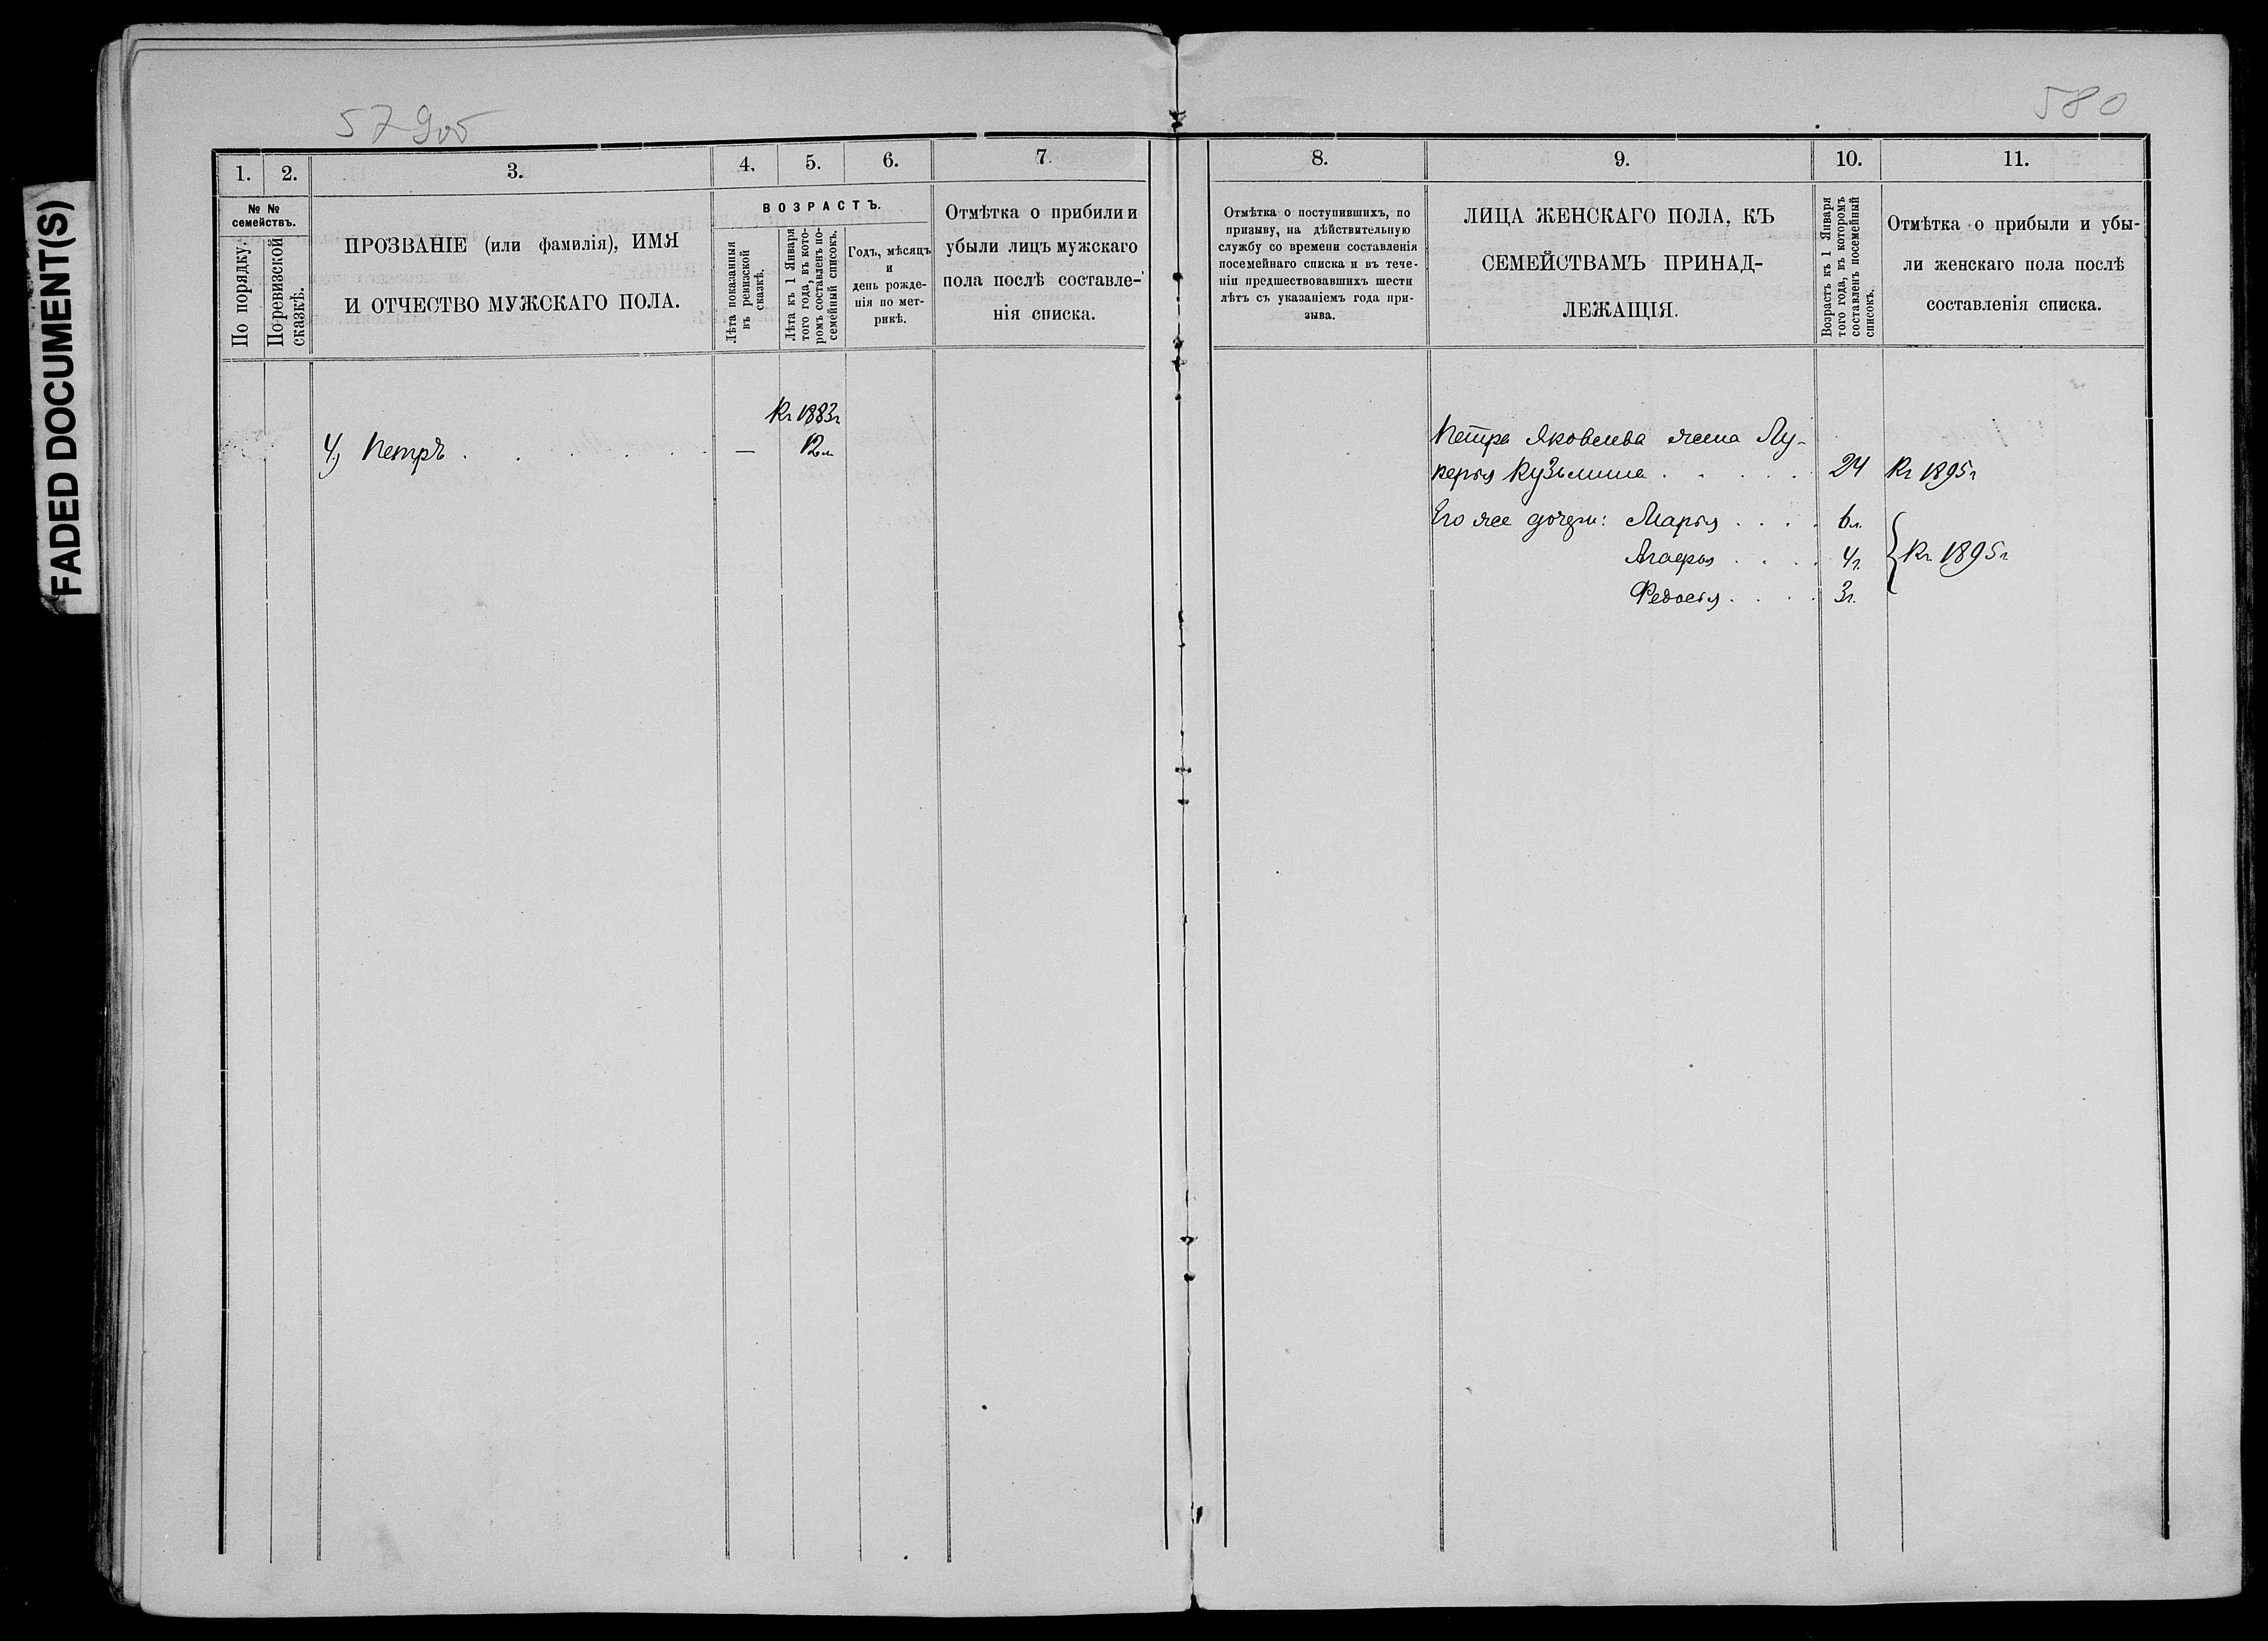 FADED DOCUMENT(S)
579об
580
1.
2.
3.
4.
5.
6.
7.
№ №
семействъ.
По порядку.
По ревизской
сказкѣ.
ПРОЗВАНІЕ (или фамилія), ИМЯ
И ОТЧЕСТВО МУЖСКАГО ПОЛА.
ВОЗРАСТЪ.
Лѣта показанныя
въ ревизской
сказкѣ.
Лѣта къ 1 Января
того года, въ кото-
ромъ составленъ по-
семейный списокъ.
Годъ, мѣсяцъ
и
день рожде-
нія по мет-
рикѣ.
Отмѣтка о прибыли и
убыли лицъ мужскаго
пола послѣ составле-
нія списка.
Къ 1883г
4, Петръ . . . . . . . — 12л.
8.
9.
10.
11.
Отмѣтка о поступившихъ, по
призыву, на дѣйствительную
службу со времени составленія
посемейнаго списка и въ тече-
ніи предшествовавшихъ шести
лѣтъ съ указаніемъ года при-
зыва.
ЛИЦА ЖЕНСКАГО ПОЛА, КЪ
СЕМЕЙСТВАМЪ ПРИНАД-
ЛЕЖАЩІЯ.
Возрастъ къ 1 Января
того года, въ которомъ
составленъ посемейный
списокъ.
Отмѣтка о прибыли и убы-
ли женскаго пола послѣ
составленія списка.
Петра Яковлева жена Лу-
керья Кузьмина . . . . . 24 Къ 1895г
Его же дочери: Марья . . . . 6л.
Агафья . . . . 4г. Къ 1895г
Федосья . . . . 3г.